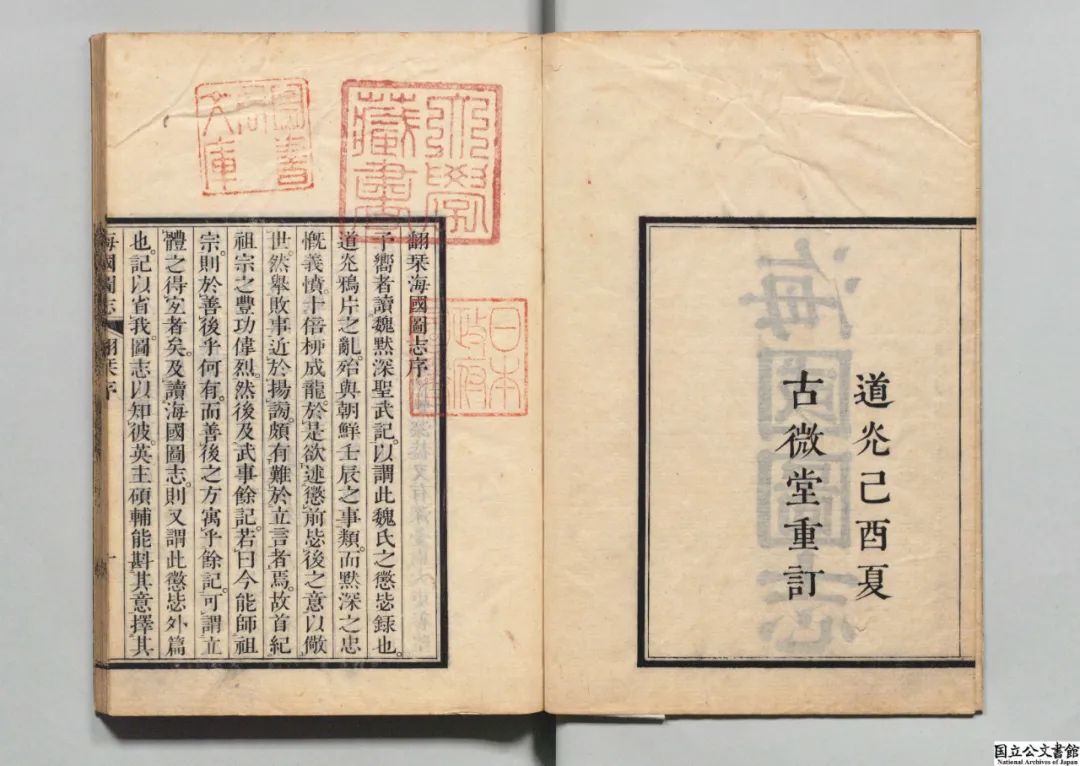 道光己酉夏
古微堂重訂
翻栞海國圖志序
予嚮者讀魏黙深聖武記。以謂此魏氏之懲毖錄也。
道光鴉片之亂。殆與朝鮮壬辰之事類。而黙深之忠
慨義憤。十倍柳成龍。於是欲述懲前毖後之意以儆
世。然舉敗事近於揚謁。頗有難於立言者焉。故首紀
祖宗之豐功偉烈。然後及武事餘記。若曰今能師祖
宗。則於善後乎何有。而善後之方寓乎餘記。可謂立
體之得宐者矣。及讀海國圖志。則又謂此懲毖外篇
也。記以省我。圖志以知彼。英主碩輔能斟其意擇其
海國圖志 翻栞序
圖書局文庫
日本政府
国立公文書館
National Archives of Japan